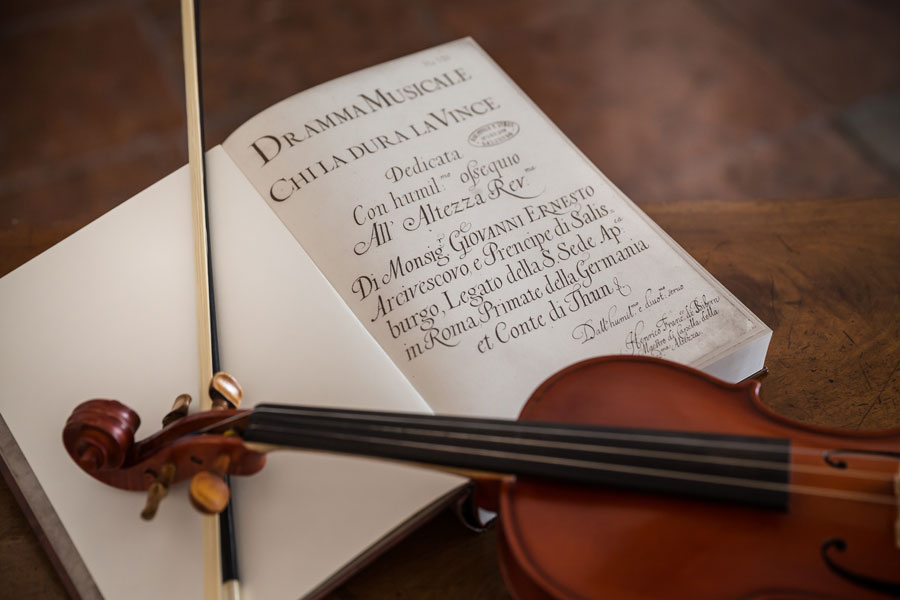 DRAMMA MUSICALE
CHI LA DURA LA VINCE
Dedicata
Con humil.mo ossequio
All' Altezza Rev.ma
Di Monsig.r GIOVANNI ERNESTO
Arcivescovo, e Prencipe di Salis,
burgo, Legato della S. Sede Ap.ca
in Roma, Primate della Germania
et Conte di Thun
Dall' humil.mo e divot.mo servo
Henrico Franc.o de Bibern
Maestro di Capella della
Altezza